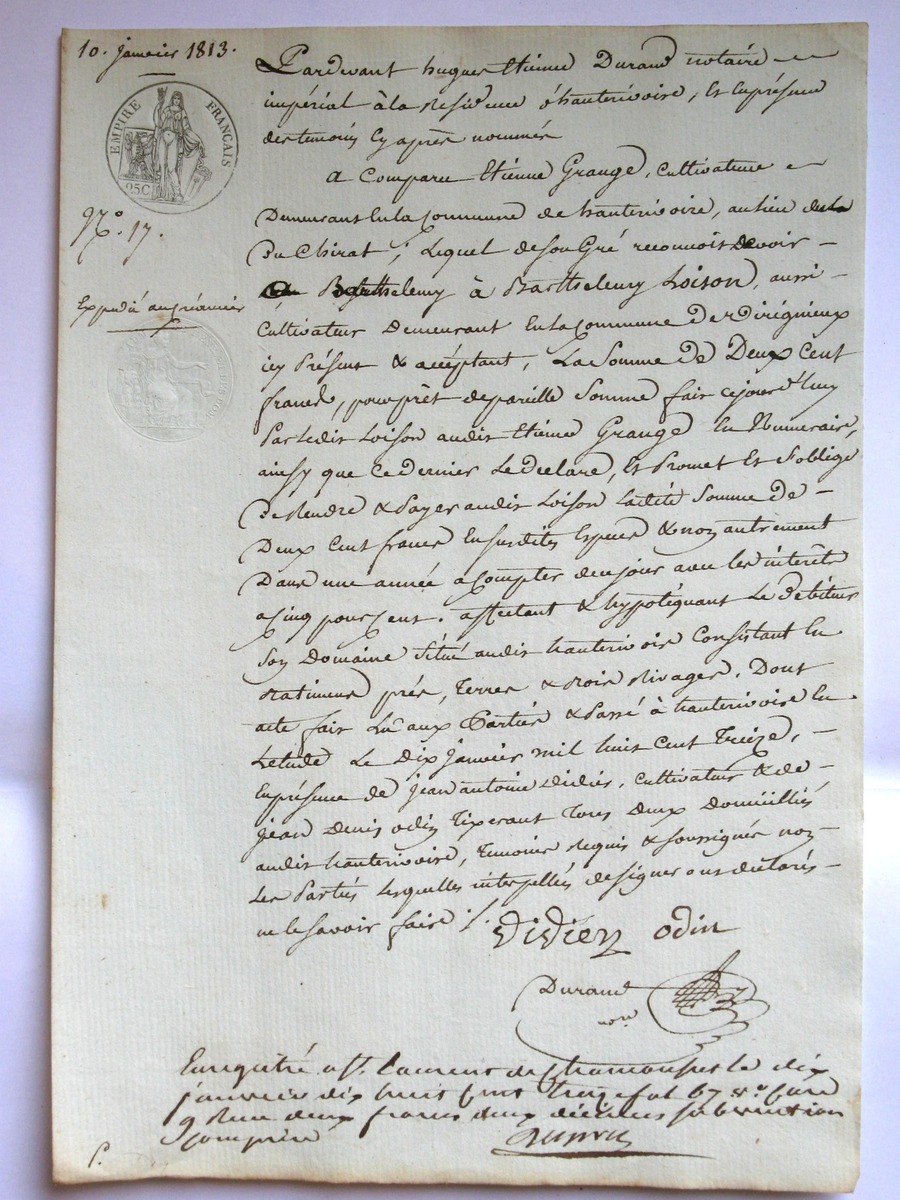 10. janvier 1813.
EMPIRE FRANÇAIS
25C
N.° 17.
Expedié au créancier
Pardevant hugues Etiénne Durand notaire
impérial à la Resid.ence d'hauterivoire, Et Enprésence
des temoins Cy après nommés
a Comparu Etiénne Grange, Cultivateur
Demeurant En la Commune de hauterivoire, au lieu de La
Du Chirat; Lequel de son Gré reconnoit devoir
Barthelemy à Barthelemy Loison, aussi
Cultivateur Demeurant En La Commune de
icy Présent & accéptant, La Somme De Deux Cent
francs, pour prêt de pareille Somme fait cejourd'huy
Par Ledit Loison audit Etiénne Grange En Numeraire,
ainsy que Ce dernier Le declare, Et Promet Et S'oblige
De Rendre & Payer audit Loison Ladite Somme de
Deux Cent francs En Susdites Espèces & non autrement
Dans une année a Compter de ce jour avec les intérêts
a Cinq pour Cent. affectant & hypotéquant Le Débiteur
Son Domaine Situé audit hauterivoire Consistant En
Batiments prés, Terres & Bois Rivages. Dont
acte fait Lû aux Partiés & Passé à hauterivoire En
Letude Le Dix janvier mil huit Cent Treize,
En présence de jean antoine Didier, Cultivateur & de
jean Denis odin Tixerant Tous Deux Domiciliés
audit hauterivoire, Temoins Requis & Soussignés non
Les Partiés Lesquelles interpellés de signer ont déclarés
ne le Savoir faire ./.
Didiér odin
Durand
no.re
Enregistré a St. Laurent de Chamousset le dix
janvier dix huit cent treize fol 67 v.° Case
9 Reçu deux francs deux décimes subvention
comprise